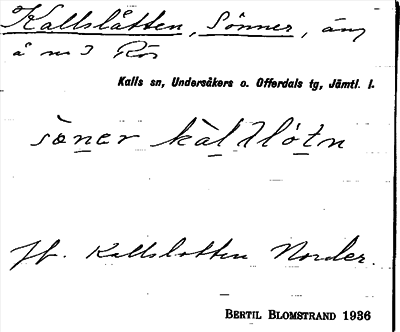 Kallslåtten, Sönner, äng
å nr 3 Rös
Kalls sn, Undersåkers o. Offerdals tg, Jämtl. l.
sœner kàlslo̍tn
Jf. Kallslotten Norder.
BERTIL BLOMSTRAND 1936